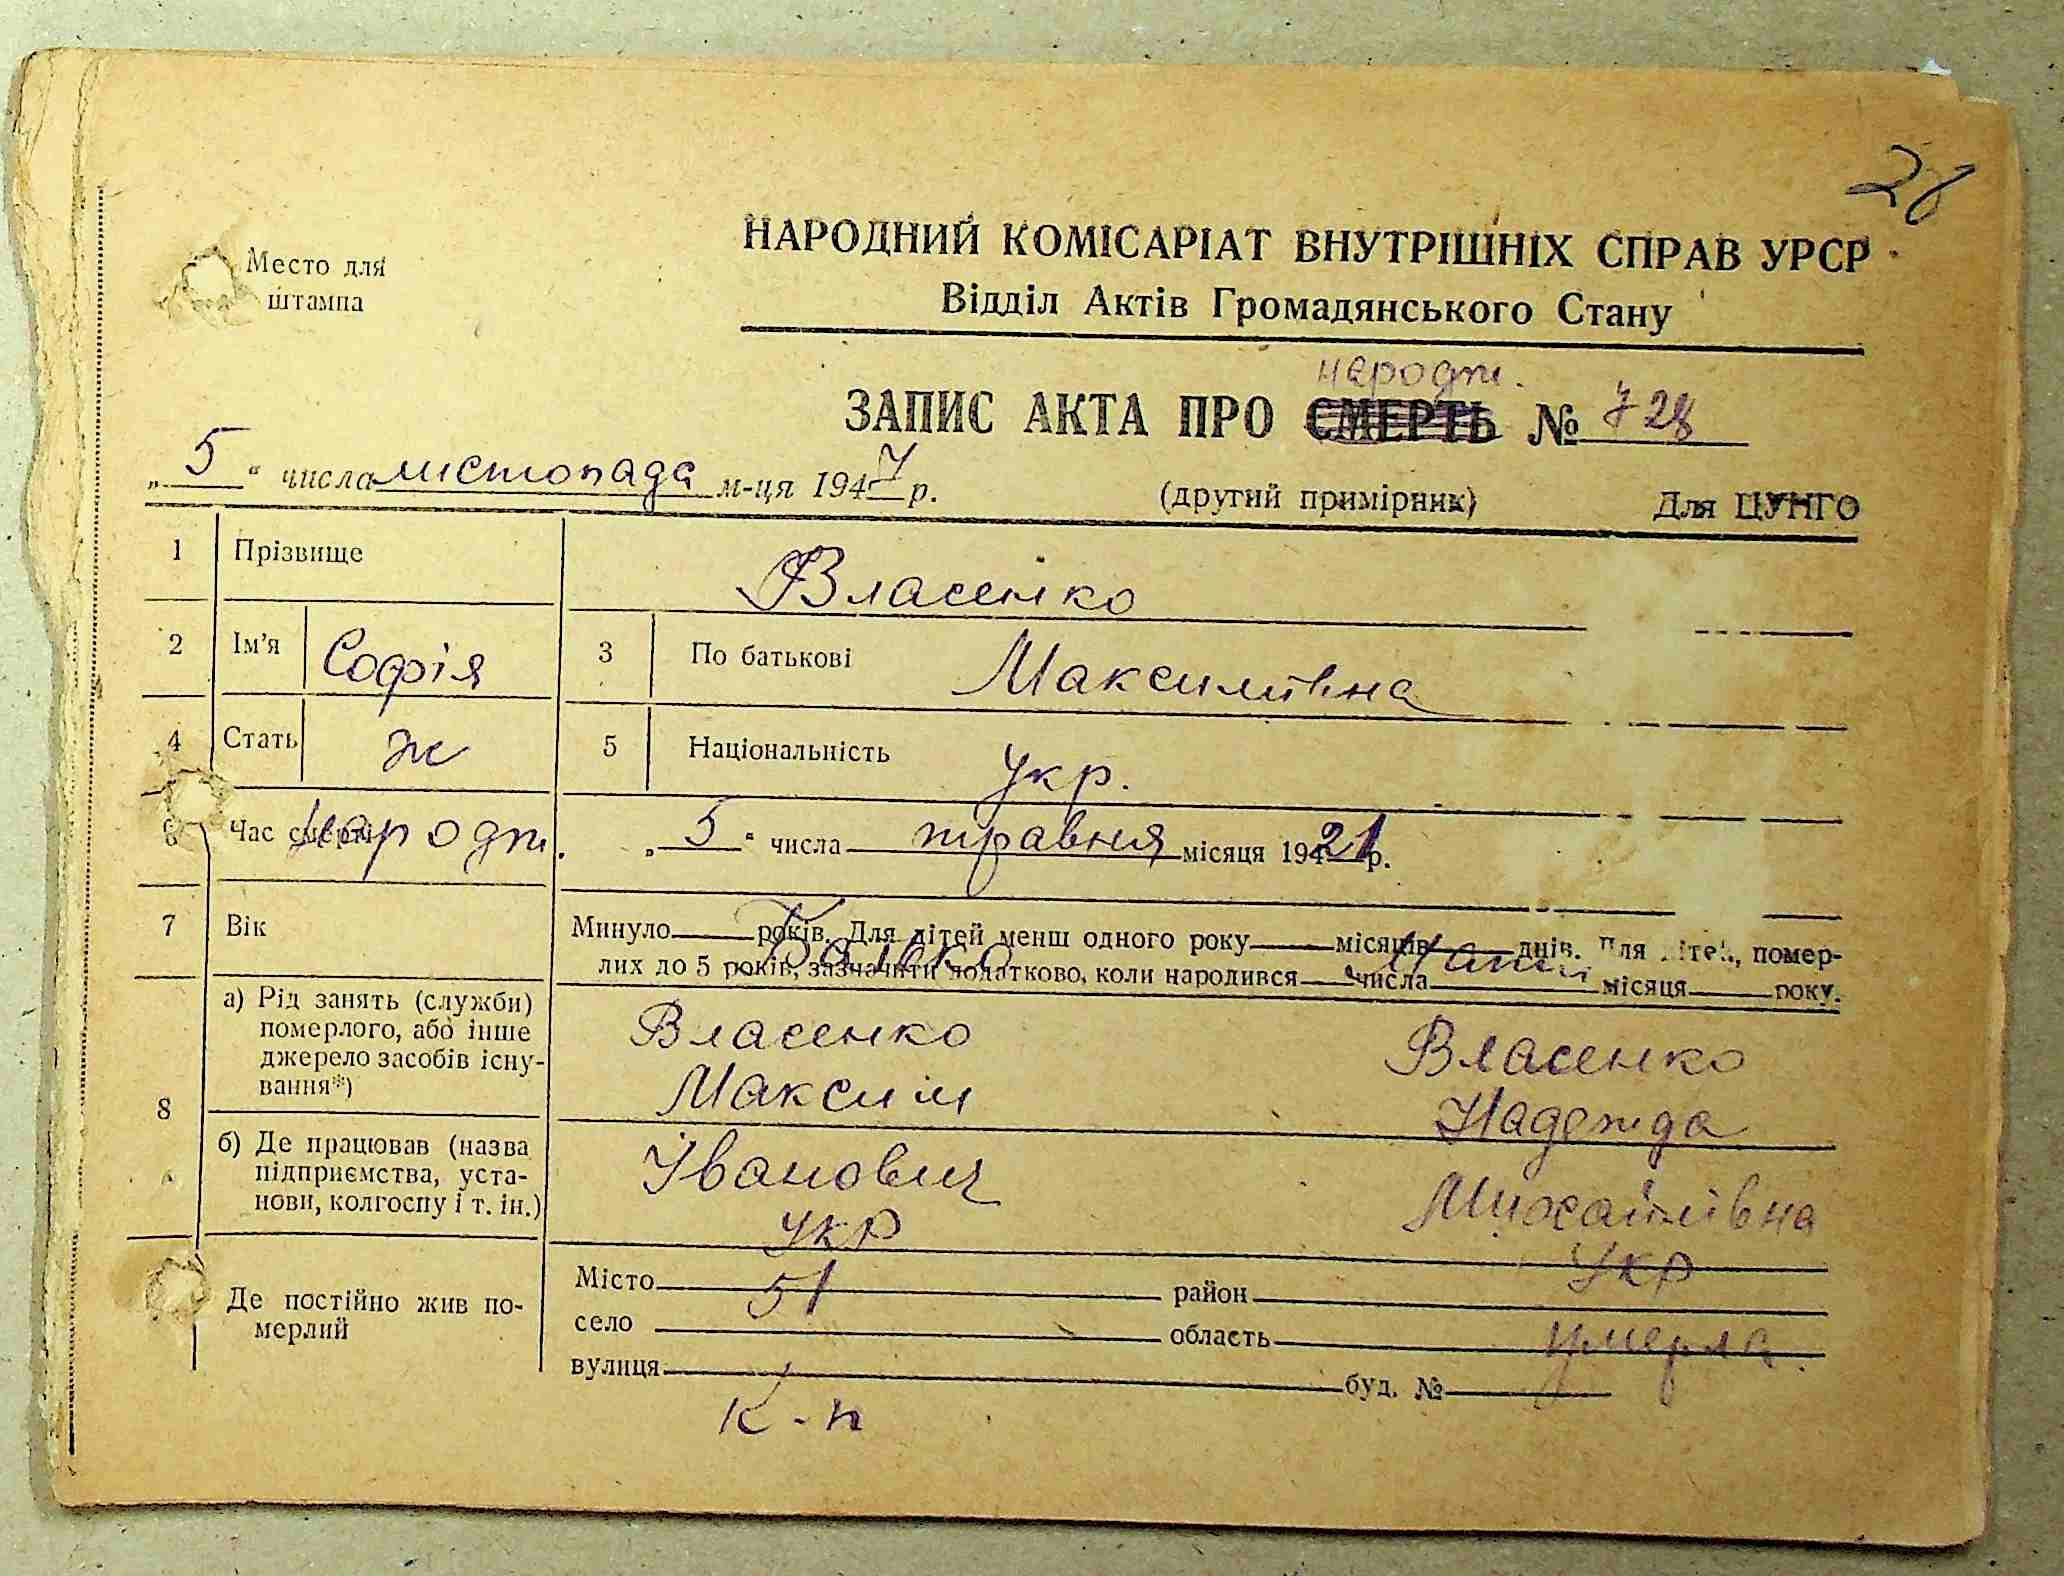 28
Место для
штампа
НАРОДНИЙ КОМІСАРІАТ ВНУТРІШНІХ СПРАВ УРСР
Відділ Актів Громадянського Стану
народж.
ЗАПИС АКТА ПРО СМЕРТЬ № 728
„5“ числа листопада м-ця 1947 р.
(другий примірник) Для ЦУНГО
1 Прізвище Власенко
2 Ім'я Софія 3 По батькові Максимівна
4 Стать ж 5 Національність укр.
6 Час смерті народж. „5“ числа травня місяця 194 21 р.
7 Вік Минуло років. Для дітей менш одного року місяців днів. Для дітей, помер-
лих до 5 років, зазначити додатково, коли народився числа місяця року.
Батько Мати
8 а) Рід занять (служби)
померлого, або інше
джерело засобів існу-
вання*)
Власенко Власенко
Максим Надежда
б) Де працював (назва
підприємства, уста-
нови, колгоспу і т. ін.)
Іванович Михайлівна
укр укр
Де постійно жив по-
мерлий
Місто 51 район
село область умерла
вулиця буд. №
к-п